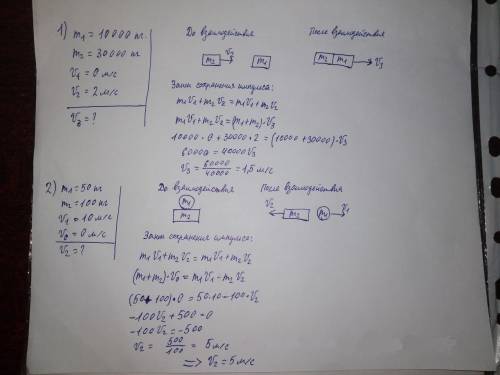 1) m₁ = 10000 кг
m₂ = 30000 кг
V₁ = 0 м/с
V₂ = 2 м/с
V₃ = ?
До взаимодействия
m₂ V₂ m₁
После взаимодействия
m₂ m₁ V₃
Закон сохранения импульса:
m₁V₁ + m₂V₂ = m₁V₁ + m₂V₂
m₁V₁ + m₂V₂ = (m₁ + m₂) · V₃
10000 · 0 + 30000 · 2 = (10000 + 30000) · V₃
60000 = 40000V₃
V₃ = 60000/40000 = 1,5 м/с
2) m₁ = 50 кг
m₂ = 100 кг
V₁ = 10 м/с
V₀ = 0 м/с
V₂ = ?
До взаимодействия
m₁
m₂
После взаимодействия
V₂ m₂ m₁ V₁
Закон сохранения импульса:
m₁V₁ + m₂V₂ = m₁V₁ + m₂V₂
(m₁ + m₂) · V₀ = m₁V₁ - m₂V₂
(50 + 100) · 0 = 50 · 10 - 100 · V₂
-100V₂ + 500 = 0
-100V₂ = -500
V₂ = 500/100 = 5 м/с
=> V₂ = 5 м/с